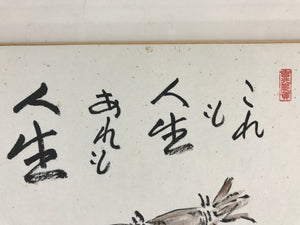 これも
人生
あれも
人生